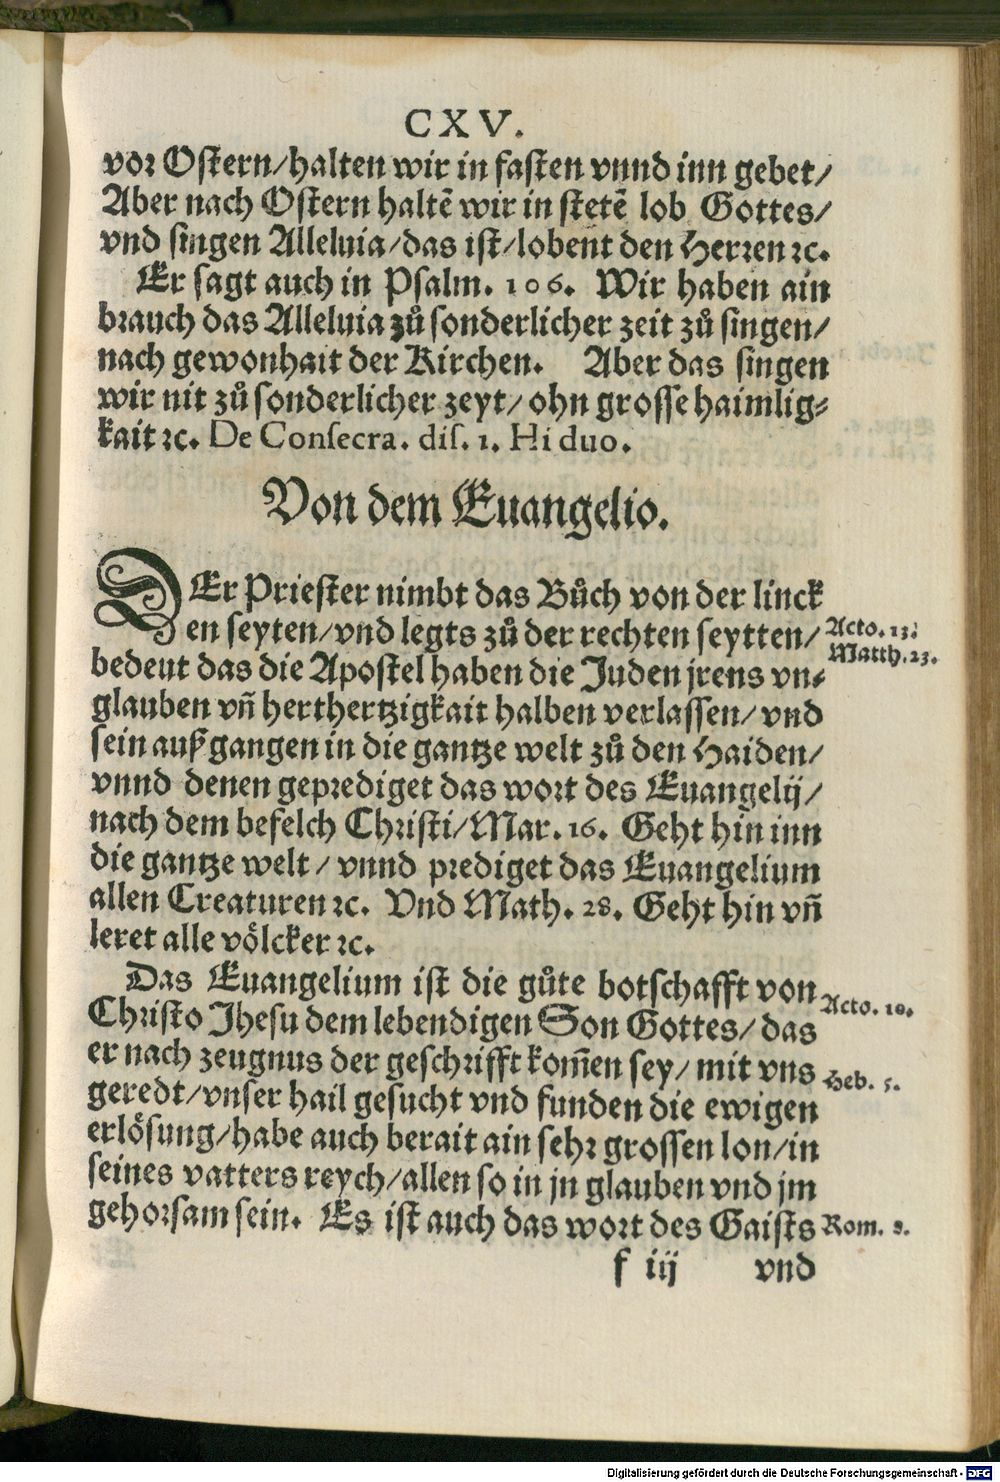 CXV.
vor Ostern/halten wir in fasten vnnd inn gebet/
Aber nach Ostern haltē wir in stetē lob Gottes/
vnd singen Alleluia/das ist/lobent den Herren ꝛc.
Er sagt auch in Psalm. 106. Wir haben ain
brauch das Alleluia zů sonderlicher zeit zů singen/
nach gewonhait der Kirchen. Aber das singen
wir nit zů sonderlicher zeyt/ ohn grosse haimlig⸗
kait ꝛc. De Consecra. dis. 1. Hi duo.
Von dem Euangelio.
DEr Priester nimbt das Bůch von der linck
en seyten/vnd legts zů der rechten seytten/
Acto. 13.
Matth. 23.
bedeut das die Apostel haben die Juden jrens vn⸗
glauben vñ herthertzigkait halben verlassen/ vnd
sein außgangen in die gantze welt zů den Haiden/
vnnd denen geprediget das wort des Euangelij/
nach dem befelch Christi/Mar. 16. Geht hin inn
die gantze welt/ vnnd prediget das Euangelium
allen Creaturen ꝛc. Vnd Math. 28. Geht hin vñ
leret alle völcker ꝛc.
Das Euangelium ist die gůte botschafft von
Acto. 10.
Christo Jhesu dem lebendigen Son Gottes/ das
er nach zeugnus der geschrifft kom̄en sey/ mit vns
Heb. 5.
geredt/vnser hail gesucht vnd funden die ewigen
erlösung/habe auch berait ain sehr grossen lon/in
seines vatters reych/allen so in jn glauben vnd jm
gehorsam sein. Es ist auch das wort des Gaists
Rom. 8.
f iij vnd
Digitalisierung gefördert durch die Deutsche Forschungsgemeinschaft - DFG